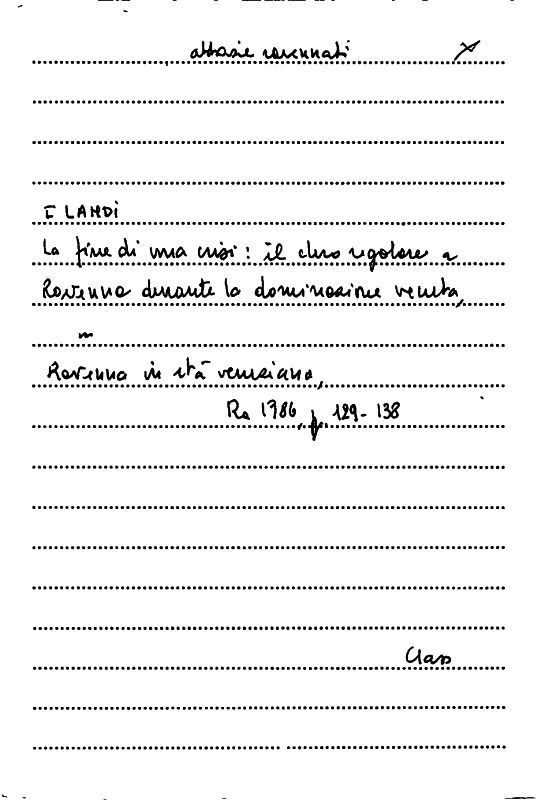 abbazie ravennati
F LANDI
La fine di una crisi: il clero regolare a
Ravenna durante la dominazione veneta,
in
Ravenna in età veneziana,
Ra 1986, p. 129-138
Class